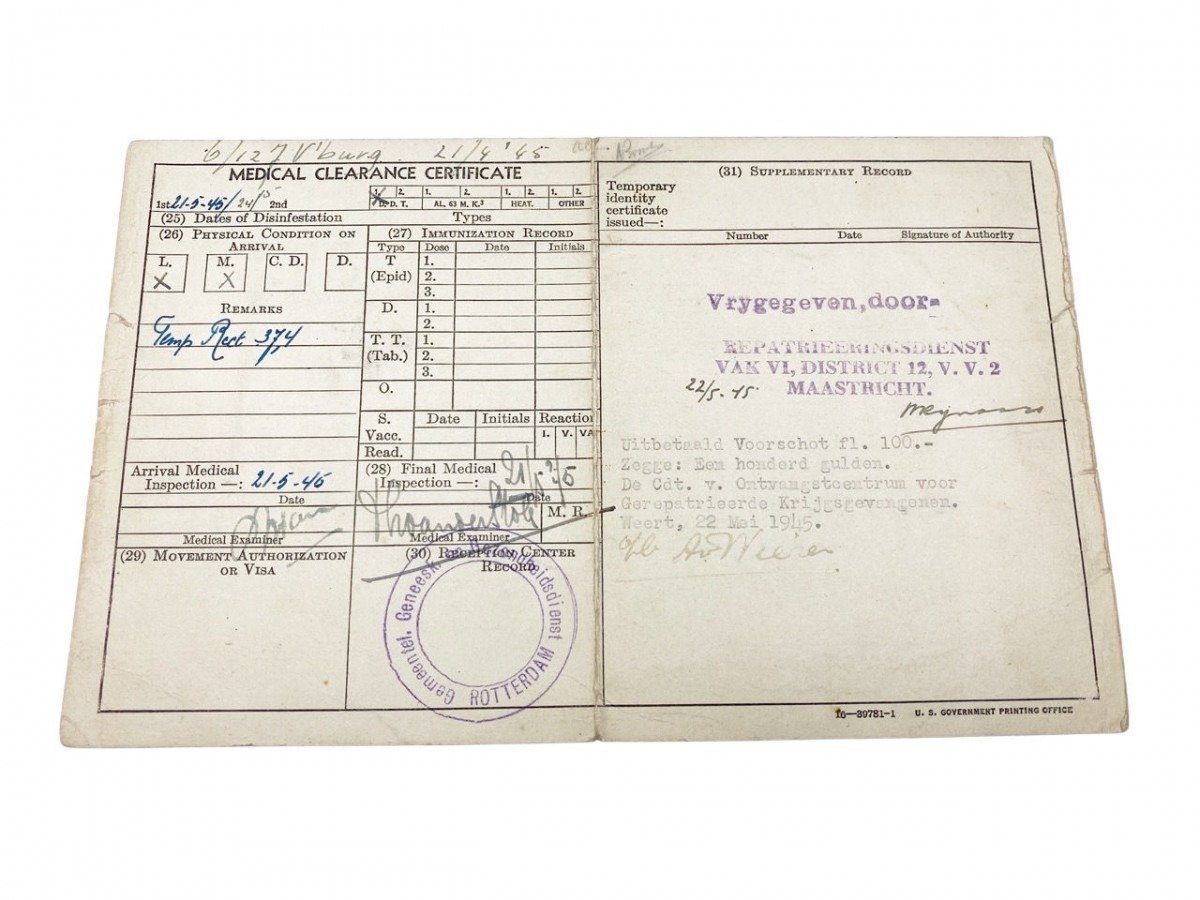 6/127 V'burg 21/4 '45
MEDICAL CLEARANCE CERTIFICATE
1. 2. 1. 2. 1. 2. 1. 2.
1st 21-5-45/ 2nd D. D. T. AL. 63 M. K.3 HEAT. OTHER
(25) Dates of Disinfestation Types
(26) Physical Condition on Arrival
L. M. C. D. D.
X X
Remarks
Temp Rect 37,4
(27) Immunization Record
Type Dose Date Initials
T (Epid) 1.
2.
3.
D. 1.
2.
T. T. (Tab.) 1.
2.
3.
O.
S. Date Initials Reaction
Vacc. I. V. VA
Read.
Arrival Medical
Inspection —: 21-5-45
Date
Medical Examiner
(28) Final Medical
Inspection —: 21/5 '45
Date
M. R.
Medical Examiner
(29) Movement Authorization
or Visa
(30) Reception Center
Record
Gemeentel. Geneesk. en Gezondheidsdienst
ROTTERDAM
(31) Supplementary Record
Temporary
identity
certificate
issued—:
Number Date Signature of Authority
Vrygegeven,door=
REPATRIEERINGSDIENST
VAK VI, DISTRICT 12, V. V. 2
MAASTRICHT.
22/5-45
Uitbetaald Voorschot fl. 100.-
Zegge: Een honderd gulden.
De Cdt. v. Ontvangstcentrum voor
Gerepatrieerde Krijgsgevangenen.
Weert, 22 Mei 1945.
16—39781-1 U. S. GOVERNMENT PRINTING OFFICE